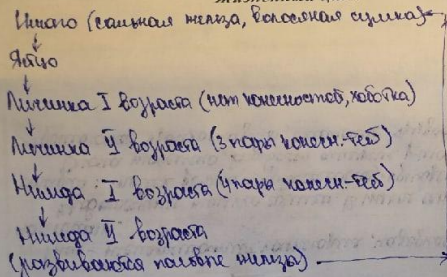 Имаго (сальная железа, волосяная сумка)
Яйцо
Личинка I возраста (нет конечностей, хоботка)
Личинка II возраста (3 пары конечн.-тей)
Нимфа I возраста (4 пары конечн.-тей)
Нимфа II возраста
(развиваются половые железы)